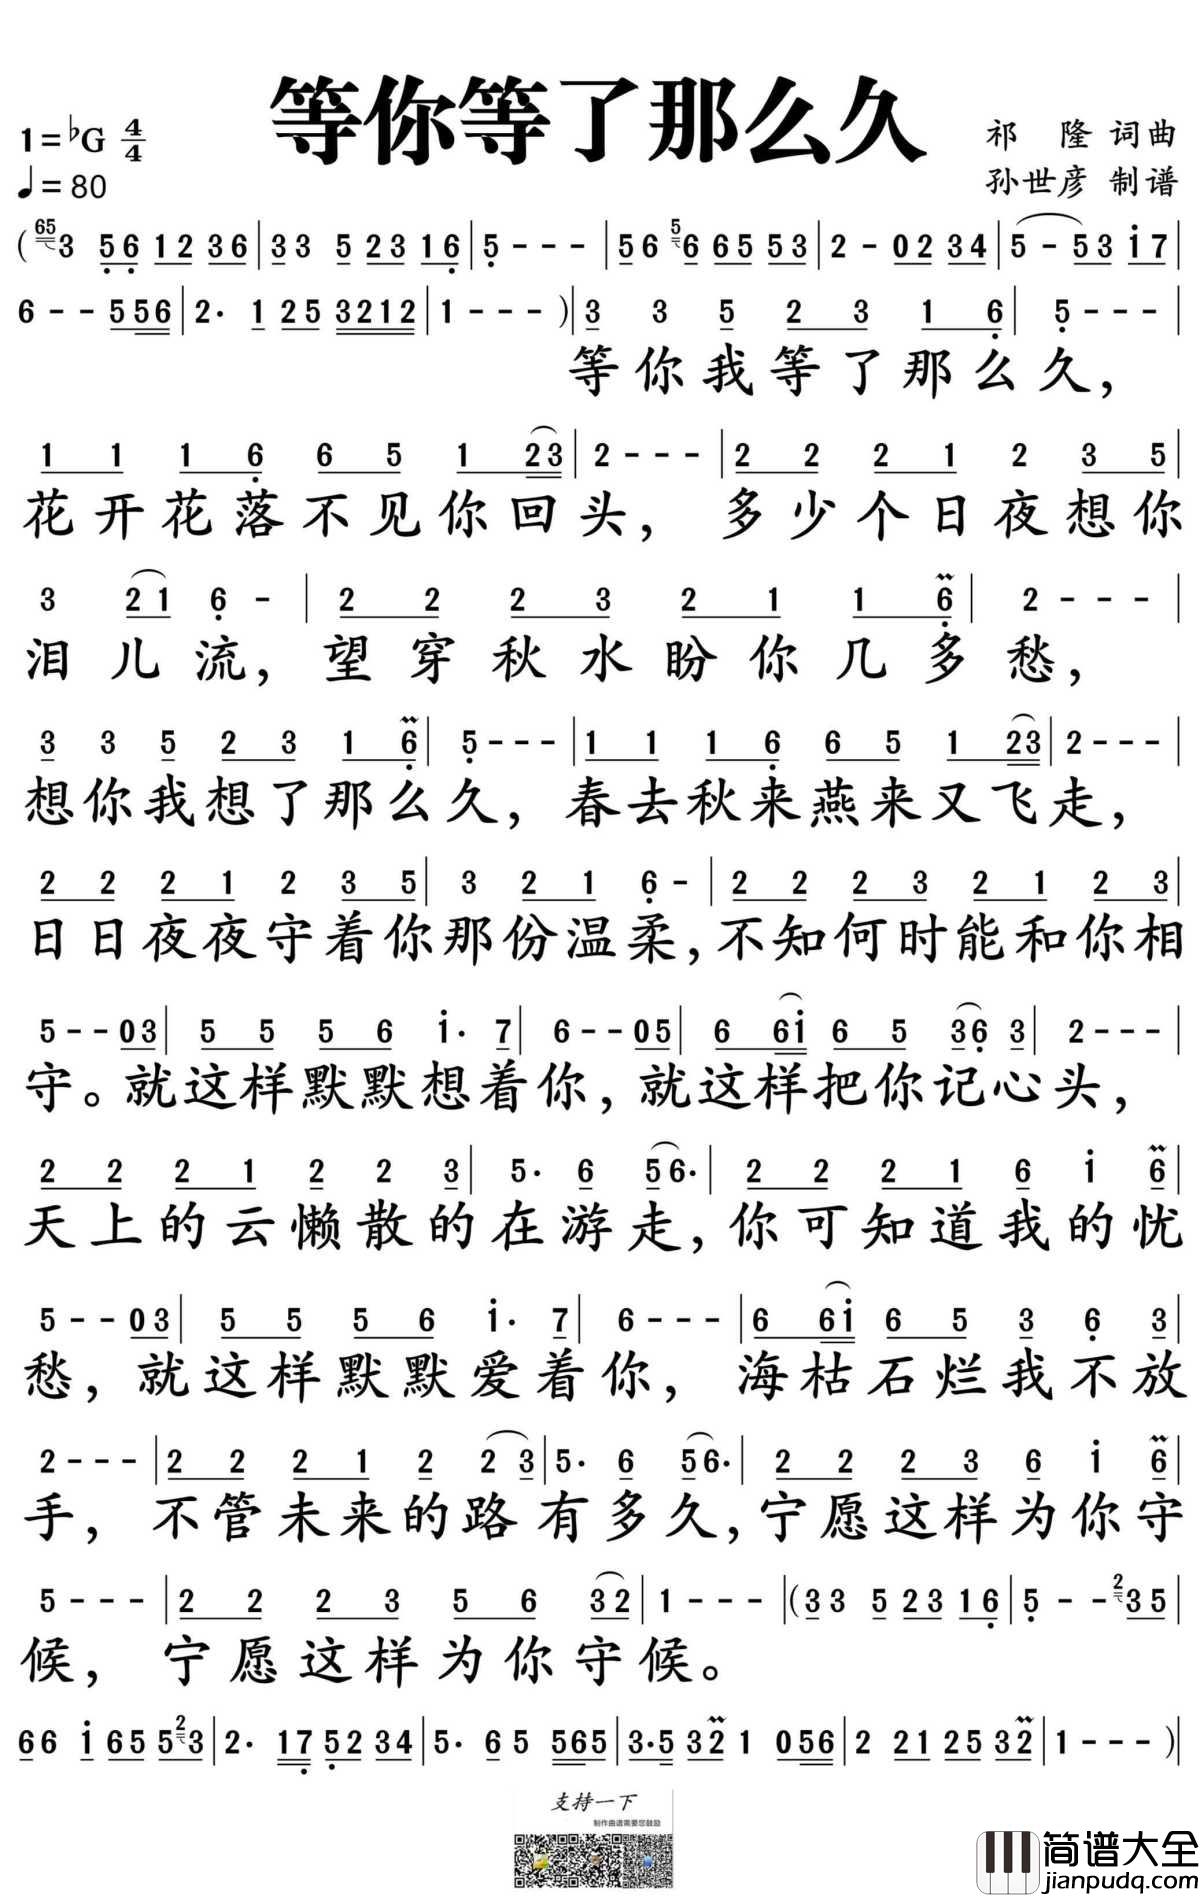 等你等了那么久
1=♭G 4/4
♩=80
祁 隆 词曲
孙世彦 制谱
(65 3 56 12 36|33 5 23 16|5 - - -|56 5 6 65 53|2 - 02 34|5 - 53 i7|
6 - - 556|2. 1 25 3212|1 - - - )|3 3 5 2 3 1 6|5 - - -|
等你我等了那么久,
1 1 1 6 6 5 1 23|2 - - -|2 2 2 1 2 3 5|
花开花落不见你回头,多少个日夜想你
3 21 6 -|2 2 2 3 2 1 1 6|2 - - -|
泪儿流,望穿秋水盼你几多愁,
3 3 5 2 3 1 6|5 - - -|1 1 1 6 6 5 1 23|2 - - -|
想你我想了那么久,春去秋来燕来又飞走,
2 2 2 1 2 3 5|3 2 1 6 -|2 2 2 3 2 1 2 3|
日日夜夜守着你那份温柔,不知何时能和你相
5 - - 03|5 5 5 6 i. 7|6 - - 05|6 6i 6 5 36 3|2 - - -|
守。就这样默默想着你,就这样把你记心头,
2 2 2 1 2 2 3|5. 6 56.|2 2 2 1 6 i 6|
天上的云懒散的在游走,你可知道我的忧
5 - - 03|5 5 5 6 i. 7|6 - - -|6 6i 6 5 3 6 3|
愁,就这样默默爱着你,海枯石烂我不放
2 - - -|2 2 2 1 2 2 3|5. 6 56.|2 2 2 3 6 i 6|
手,不管未来的路有多久,宁愿这样为你守
5 - - -|2 2 2 3 5 6 32|1 - - -|(33 5 23 16|5 - - 2 35|
候,宁愿这样为你守候。
66 i 65 5 2 3|2. 17 52 34|5. 6 5 565|3.5 32 1 056|2 21 25 32|1 - - - )|
支持一下
制作曲谱需要您鼓励
简谱大全
jianpudq.com